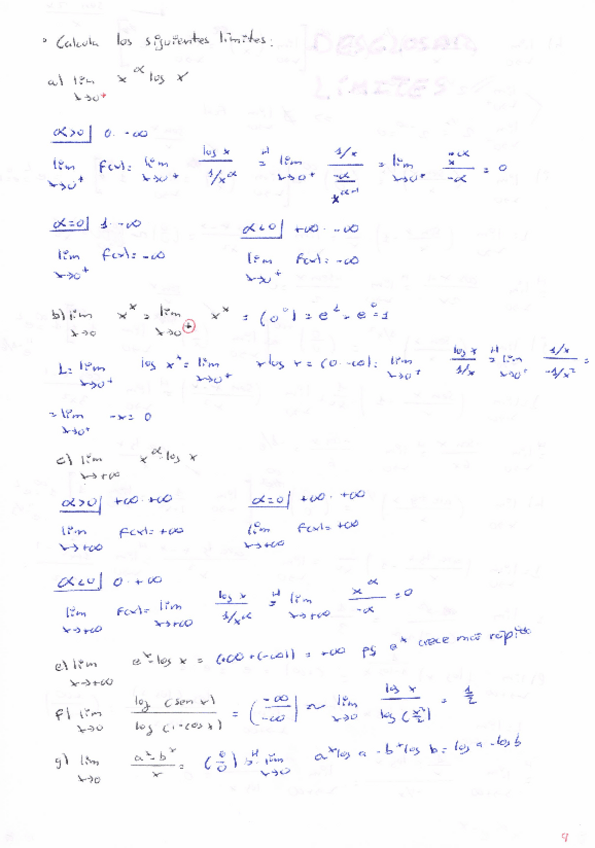 • Calcula los siguientes límites:
a) lim x→0⁺ x^α log x
α>0| 0·-∞
lim x→0⁺ f(x)= lim x→0⁺ log x / 1/x^α =ᴴ lim x→0⁺ 1/x / -α/x^(α+1) = lim x→0⁺ x^α / -α = 0
α=0| 1·-∞ α<0| +∞·-∞
lim x→0⁺ f(x)=-∞ lim x→0⁺ f(x)=-∞
b) lim x→0 x^x = lim x→0⁺ x^x = (0⁰) = e^L = e⁰=1
L= lim x→0⁺ log x^x = lim x→0⁺ x log x = (0·-∞) = lim x→0⁺ log x / 1/x =ᴴ lim x→0⁺ 1/x / -1/x² =
= lim x→0⁺ -x = 0
c) lim x→+∞ x^α log x
α>0| +∞·+∞ α=0| +∞·+∞
lim x→+∞ f(x)=+∞ lim x→+∞ f(x)=+∞
α<0| 0·+∞
lim x→+∞ f(x)= lim x→+∞ log x / 1/x^α =ᴴ lim x→+∞ x^α / -α = 0
e) lim x→+∞ e^x - log x = (+∞+(-∞)) = +∞ pq e^x crece más rápido
f) lim x→0 log (sen x) / log (1-cos x) = (-∞/-∞) ~ lim x→0 log x / log (x²/2) = 1/2
g) lim x→0 a^x-b^x / x = (0/0) =ᴴ lim x→0 a^x log a - b^x log b = log a - log b
4